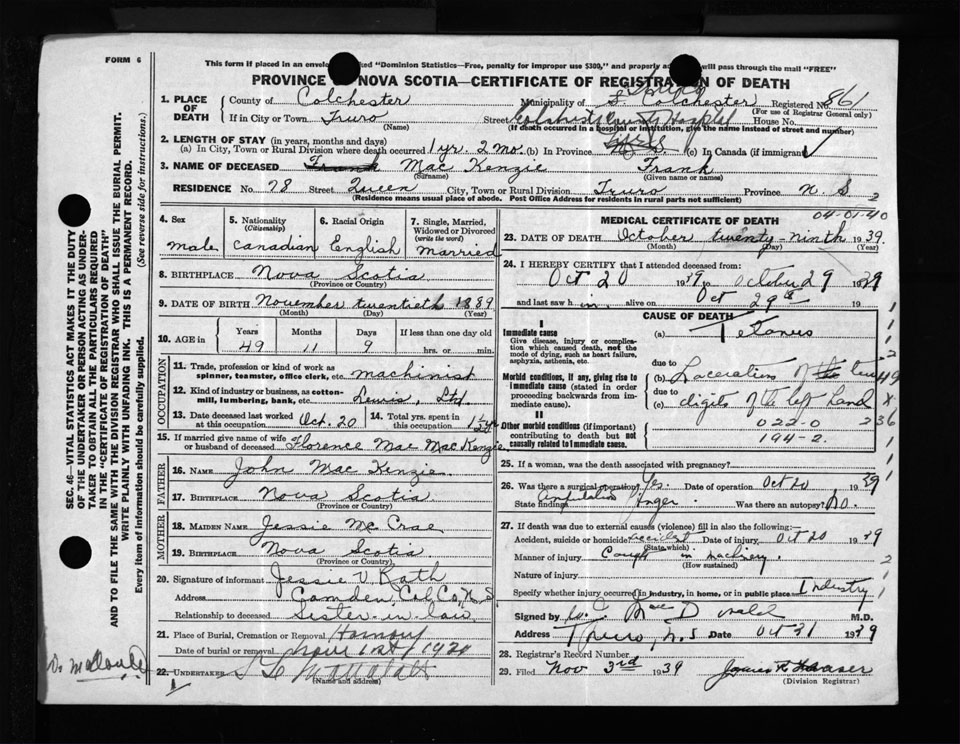 FORM 6
This form if placed in an envelo ked "Dominion Statistics—Free, penalty for improper use $300," and properly a will pass through the mail "FREE"
PROVINCE NOVA SCOTIA—CERTIFICATE OF REGISTRATION OF DEATH
1. PLACE OF DEATH
County of Colchester Municipality of Colchester Registered No. 861
(For use of Registrar General only)
If in City, Town or Truro (Name) Street Colchester County Hospital House No.
(If death occurred in a hospital or institution, give the name instead of street and number)
2. LENGTH OF STAY (in years, months and days)
(a) In City, Town or Rural Division where death occurred 1 yr. 2 mo. (b) In Province (c) In Canada (if immigrant)
3. NAME OF DECEASED Frank Mac Kenzie Frank
(Surname) (Given name or names)
RESIDENCE No. 78 Street Queen City, Town or Rural Division Truro Province N. S 2
(Residence means usual place of abode. Post Office Address for residents in rural parts not sufficient)
4. Sex Male
5. Nationality (Citizenship) Canadian
6. Racial Origin English
7. Single, Married, Widowed or Divorced (write the word) Married
8. BIRTHPLACE Nova Scotia
(Province or Country)
9. DATE OF BIRTH November twentieth 1889
(Month) (Day) (Year)
10. AGE in Years Months Days If less than one day old
49 11 9 hrs. or min.
OCCUPATION
11. Trade, profession or kind of work as spinner, teamster, office clerk, etc. machinist
12. Kind of industry or business, as cotton-mill, lumbering, bank, etc. Lewis, Ltd.
13. Date deceased last worked at this occupation Oct. 20
14. Total yrs. spent in this occupation
15. If married give name of wife or husband of deceased Florence Mac MacKenzie
FATHER
16. NAME John Mac Kenzie
17. BIRTHPLACE Nova Scotia
(Province or Country)
MOTHER
18. MAIDEN NAME Jessie Mc Crae
19. BIRTHPLACE Nova Scotia
(Province or Country)
20. Signature of informant Jessie V. Kath
Address Camden, Col. Co., N.S
Relationship to deceased Sister-in-law
21. Place of Burial, Cremation or Removal
Date of burial or removal Nov 1st
22. UNDERTAKER
(Name and address)
MEDICAL CERTIFICATE OF DEATH
04-01-40
23. DATE OF DEATH October twenty-ninth 1939.
(Month) (Day) (Year)
24. I HEREBY CERTIFY that I attended deceased from:
Oct 20 1939 to October 29 1939
and last saw h im alive on Oct 29th 19
CAUSE OF DEATH
I
Immediate cause
Give disease, injury or complication which caused death, not the mode of dying, such as heart failure, asphyxia, asthenia, etc.
(a) Tetanus
due to
Morbid conditions, if any, giving rise to immediate cause (stated in order proceeding backwards from immediate cause).
(b) Laceration of the two
due to
(c) digits of the left hand
II
Other morbid conditions (if important) contributing to death but not causally related to immediate cause.
022-0
194-2.
25. If a woman, was the death associated with pregnancy?
26. Was there a surgical operation? Yes. Date of operation Oct 20 1939
State findings Amputation finger. Was there an autopsy? No.
27. If death was due to external causes (violence) fill in also the following:
Accident, suicide or homicide? Accident (State which) Date of injury Oct 20 1939
Manner of injury Caught in Machinery.
(How sustained)
Nature of injury
Specify whether injury occurred in industry, in home, or in public place Industry
Signed by Mac Donald M.D.
Address Truro, N.S Date Oct 31 1939
28. Registrar's Record Number
29. Filed Nov 3rd 1939
(Division Registrar)
SEC. 46—VITAL STATISTICS ACT MAKES IT THE DUTY OF THE UNDERTAKER OR PERSON ACTING AS UNDERTAKER TO OBTAIN ALL THE PARTICULARS REQUIRED IN THE "CERTIFICATE OF REGISTRATION OF DEATH" AND TO FILE THE SAME WITH THE DIVISION REGISTRAR WHO SHALL ISSUE THE BURIAL PERMIT.
WRITE PLAINLY WITH UNFADING INK. THIS IS A PERMANENT RECORD.
Every item of information should be carefully supplied. (See reverse side for instructions.)